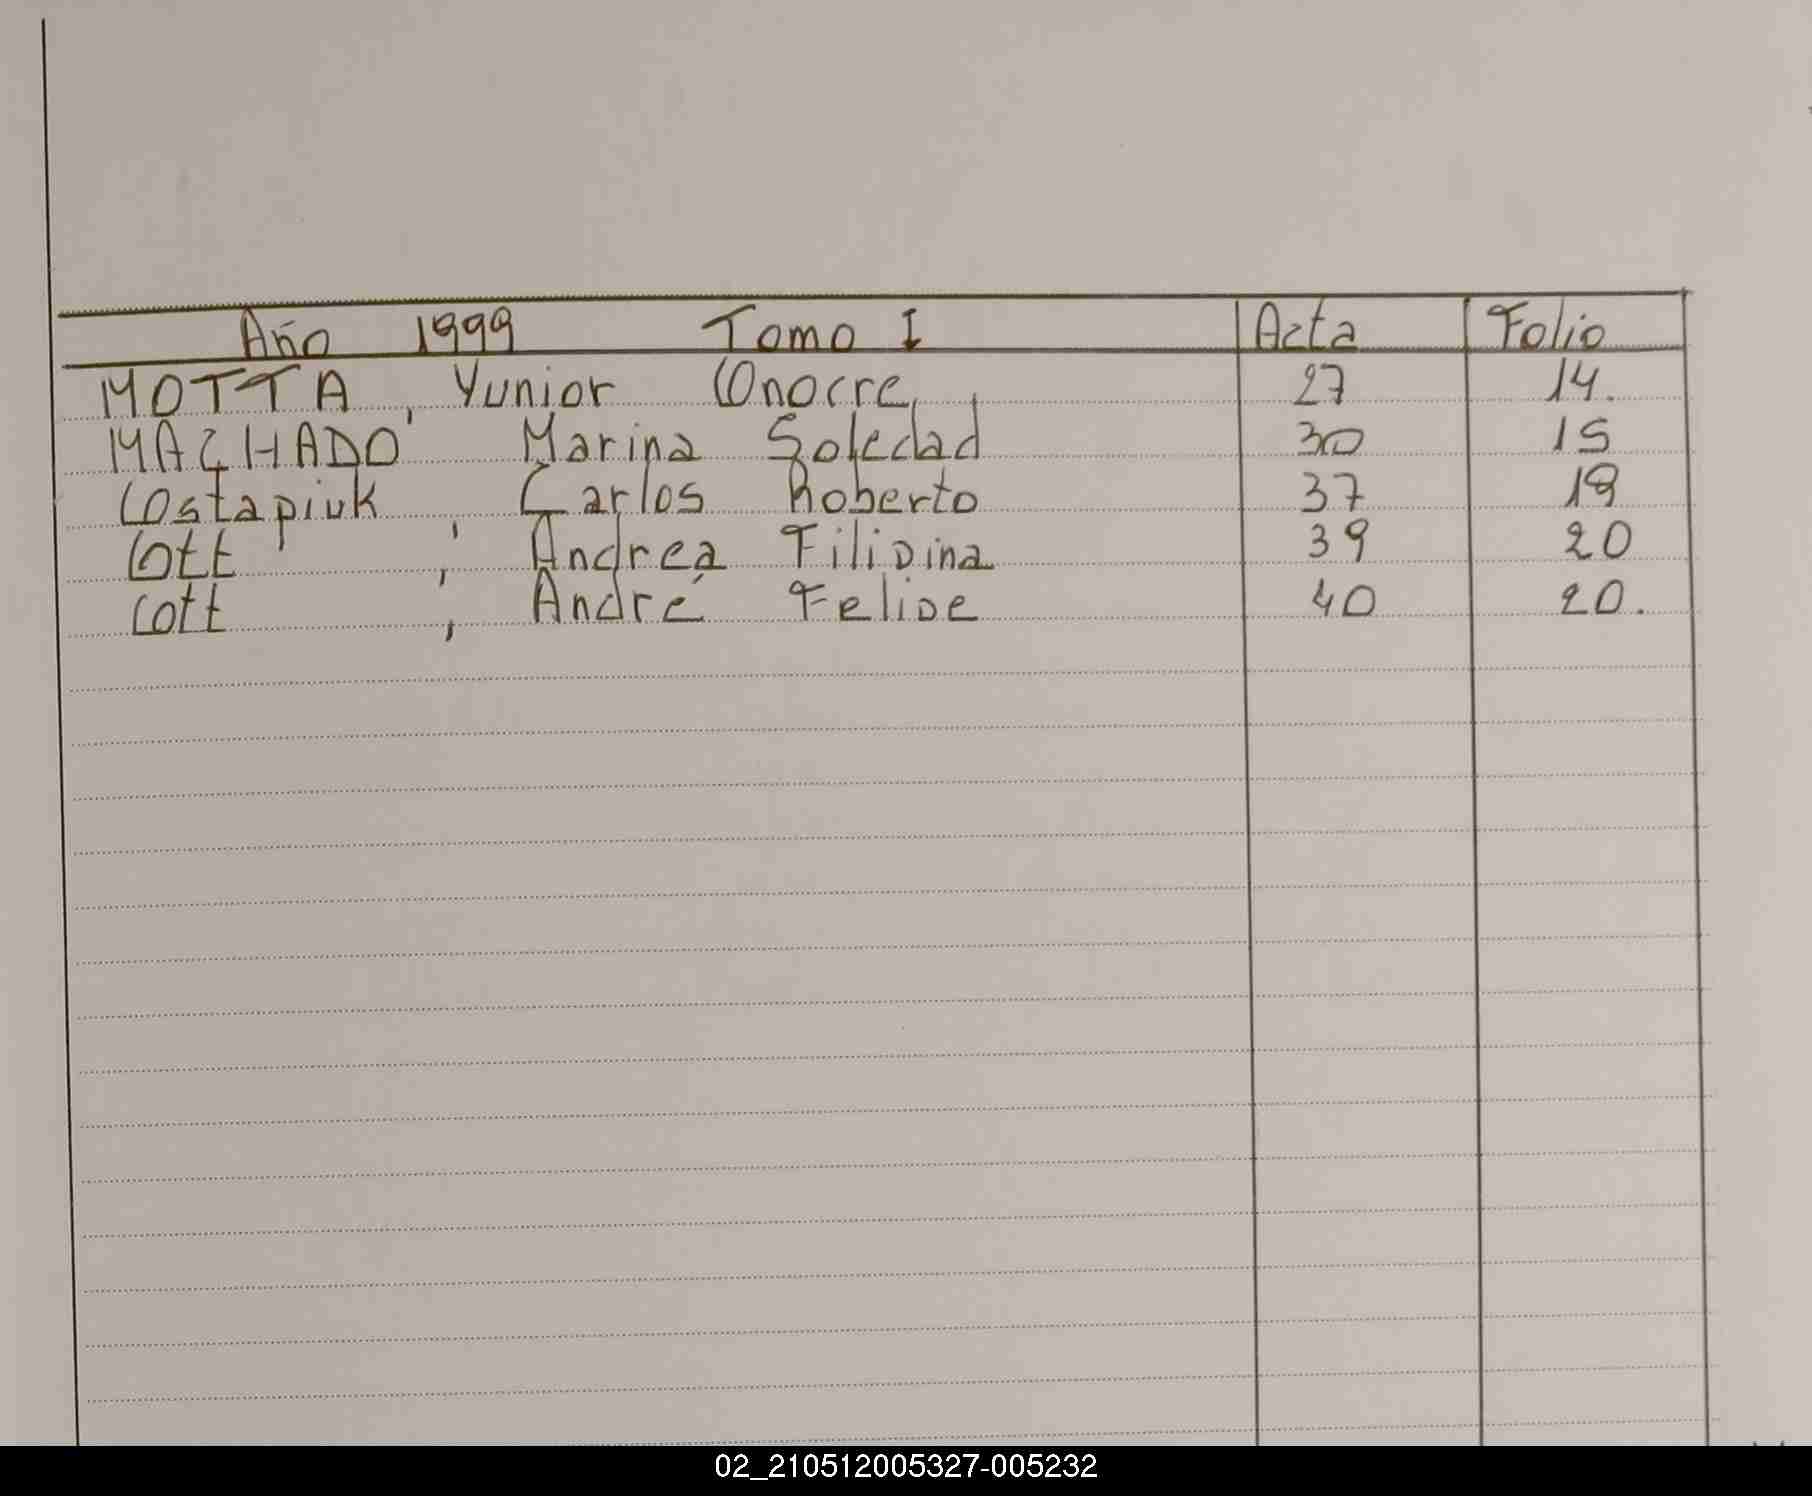 Año 1999 Tomo I Acta Folio
MOTTA, Yunior Onocre 27 14.
MACHADO, Marina Soledad 30 15
Costapiuk, Carlos Roberto 37 19
Cott, Andrea Filipina 39 20
Cott, André Felipe 40 20.
02_210512005327-005232